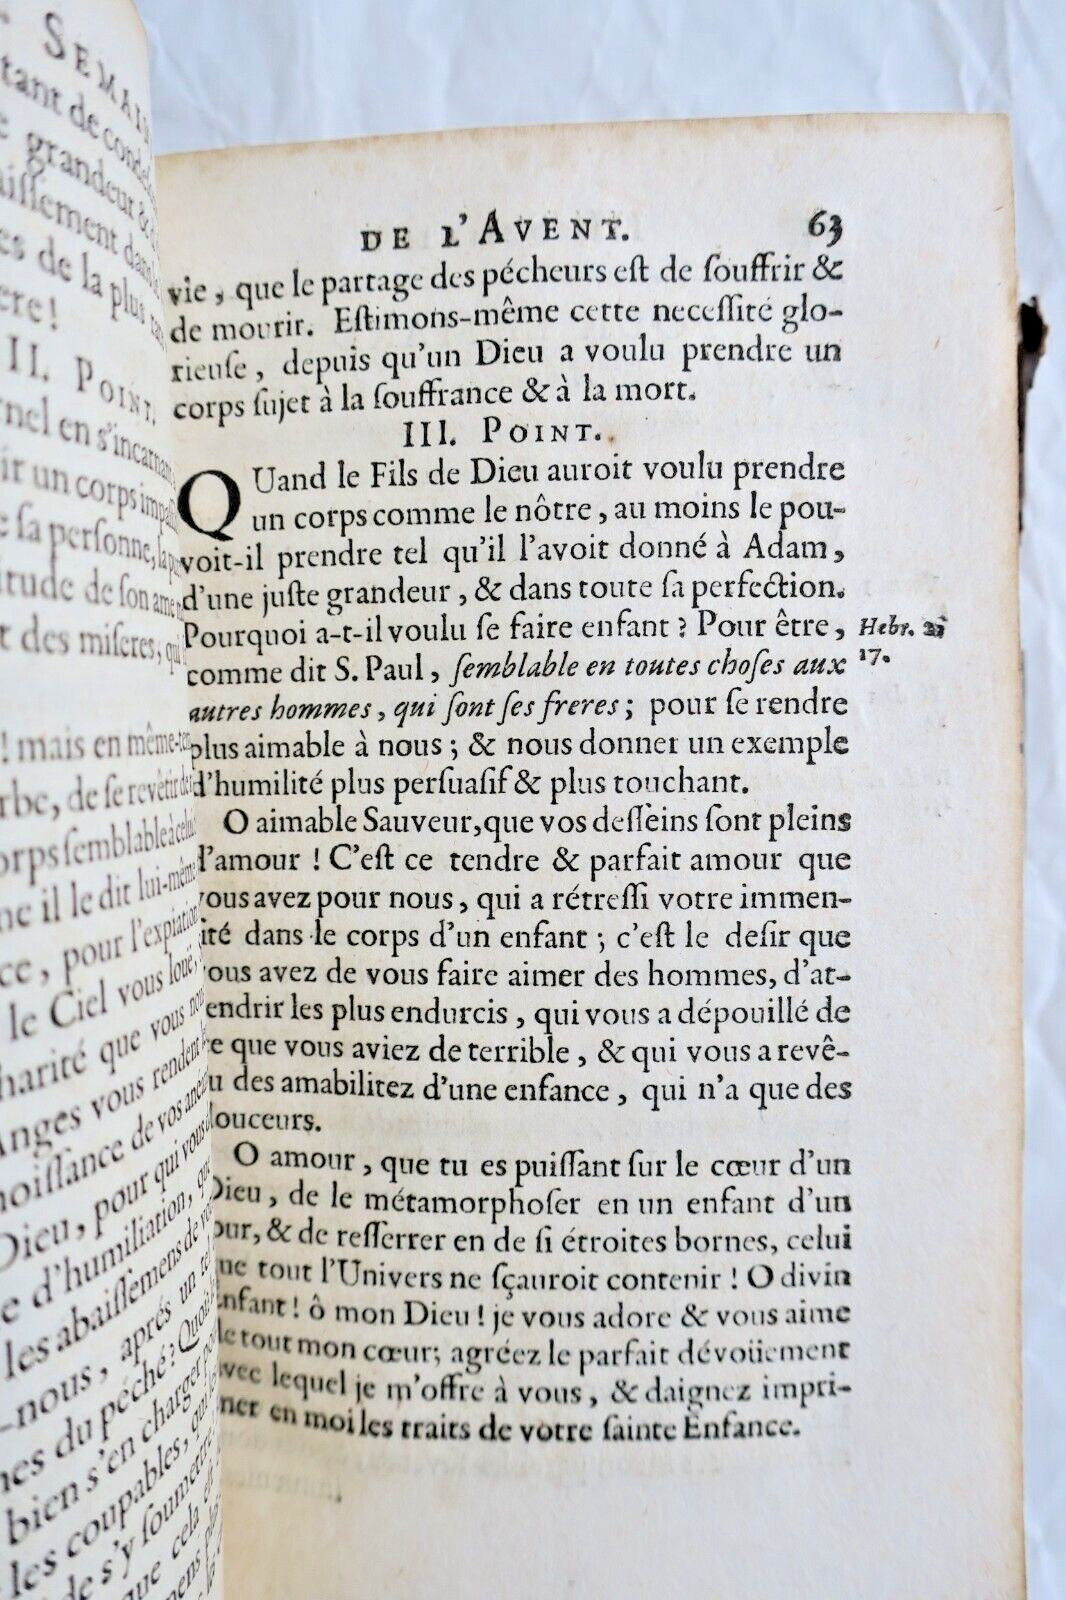 SEMAIN
tant de
grandeur &
aiſſement dans
es de la plus
ere!
II. POINT.
nel en s'incarnant
ir un corps
ſa perſonne,
itude de ſon ame
t des miſeres, qui
! mais en même-tem
rbe, de ſe revêtir de
orps ſemblable à celui
ne il le dit lui-même
ce, pour l'expiation
le Ciel vous louë,
harité que vous nous
Anges vous rendent
noiſſance de vos
Dieu, pour qui vous
e d'humiliation, que
les abaiſſemens de
-nous, aprés un tel
nes du péché? Quoi
bien s'en charger
les coupables, qui
de s'y ſoumettre
que cela
DE L'AVENT. 63
vie, que le partage des pécheurs eſt de ſouffrir &
de mourir. Eſtimons-même cette neceſſité glo-
rieuſe, depuis qu'un Dieu a voulu prendre un
corps ſujet à la ſouffrance & à la mort.
III. POINT.
QUand le Fils de Dieu auroit voulu prendre
un corps comme le nôtre, au moins le pou-
voit-il prendre tel qu'il l'avoit donné à Adam,
d'une juſte grandeur, & dans toute ſa perfection.
Pourquoi a-t-il voulu ſe faire enfant? Pour être,
Hebr.
comme dit S. Paul, ſemblable en toutes choſes aux
17.
autres hommes, qui ſont ſes freres; pour ſe rendre
plus aimable à nous; & nous donner un exemple
d'humilité plus perſuaſif & plus touchant.
O aimable Sauveur, que vos deſſeins ſont pleins
d'amour! C'eſt ce tendre & parfait amour que
vous avez pour nous, qui a rétreſſi votre immen-
ſité dans le corps d'un enfant; c'eſt le deſir que
vous avez de vous faire aimer des hommes, d'at-
tendrir les plus endurcis, qui vous a dépouillé de
ce que vous aviez de terrible, & qui vous a revê-
tu des amabilitez d'une enfance, qui n'a que des
douceurs.
O amour, que tu es puiſſant ſur le cœur d'un
Dieu, de le métamorphoſer en un enfant d'un
jour, & de reſſerrer en de ſi étroites bornes, celui
que tout l'Univers ne ſçauroit contenir! O divin
Enfant! ô mon Dieu! je vous adore & vous aime
de tout mon cœur; agréez le parfait dévoüement
avec lequel je m'offre à vous, & daignez impri-
mer en moi les traits de votre ſainte Enfance.